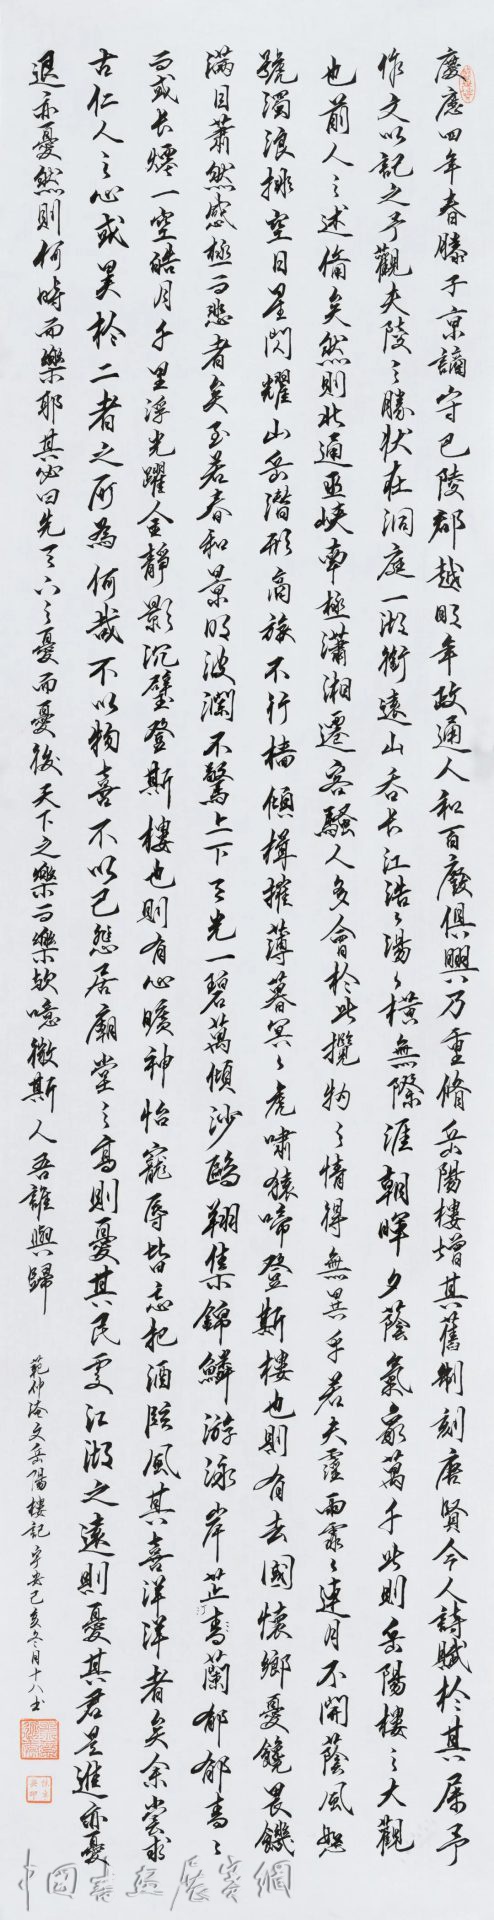 慶曆四年春滕子京謫守巴陵郡越明年政通人和百廢俱興乃重脩岳陽樓增其舊制刻唐賢今人詩賦於其屬予
作文以記之予觀夫陵之勝狀在洞庭一湖銜遠山吞長江浩々湯々橫無際涯朝暉夕蔭氣象萬千此則岳陽樓之大觀
也前人之述備矣然則北通巫峽南極瀟湘遷客騷人多會於此攬物之情得無異乎若夫霪雨霏々連月不開蔭風怒
號濁浪排空日星閃耀山岳潛形商旅不行檣傾楫摧薄暮冥々虎嘯猿啼登斯樓也則有去國懷鄉憂饞畏饑
滿目蕭然感極而悲者矣至若春和景明波瀾不驚上下天光一碧萬傾沙鷗翔集錦鱗游泳岸芷青蘭郁郁青々
汀
而或長煙一空皓月千里浮光躍金靜影沉璧登斯樓也則有心曠神怡寵辱皆忘把酒臨風其喜洋洋者矣余嘗求
古仁人之心或異於二者之所為何哉不以物喜不以己悲居廟堂之高則憂其民處江湖之遠則憂其君是進亦憂
退亦憂然則何時而樂耶其必曰先天下之憂而憂後天下之樂而樂歟噫微斯人吾誰與歸
範仲淹文岳陽樓記 宇安己亥冬月十八書
中國書畫展賽網